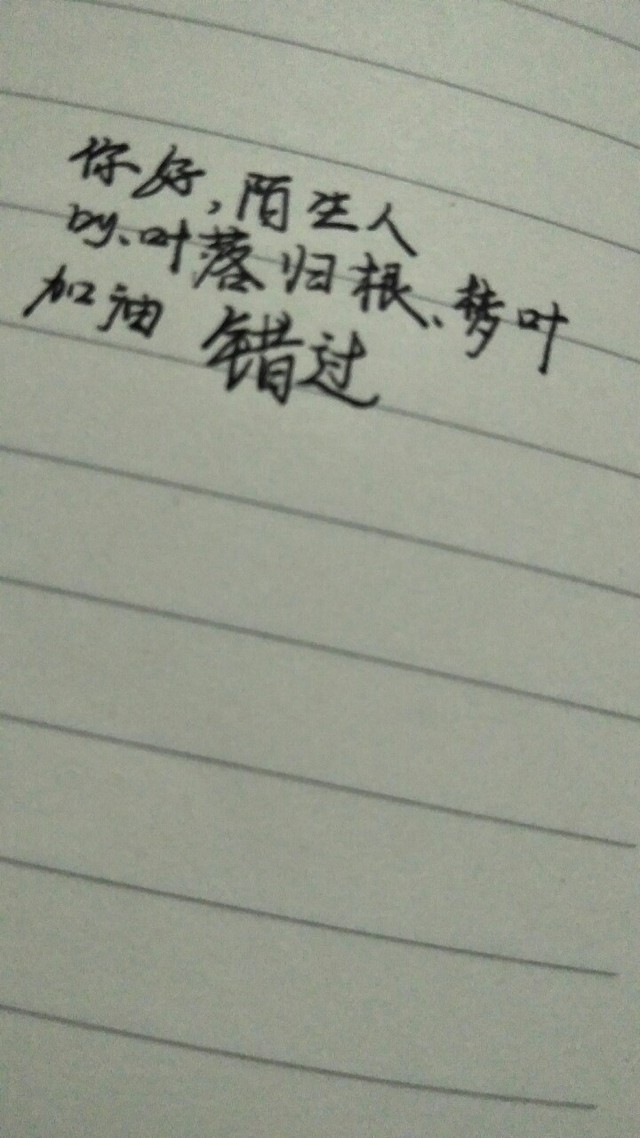 你好,陌生人
by.叶落归根、梦叶
加油 错过